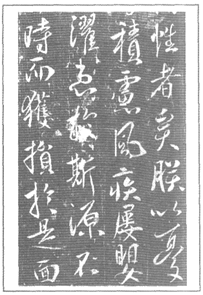 性者矣朕以憂
積慮風疾屢嬰
濯患於斯源不
時而獲損於是面